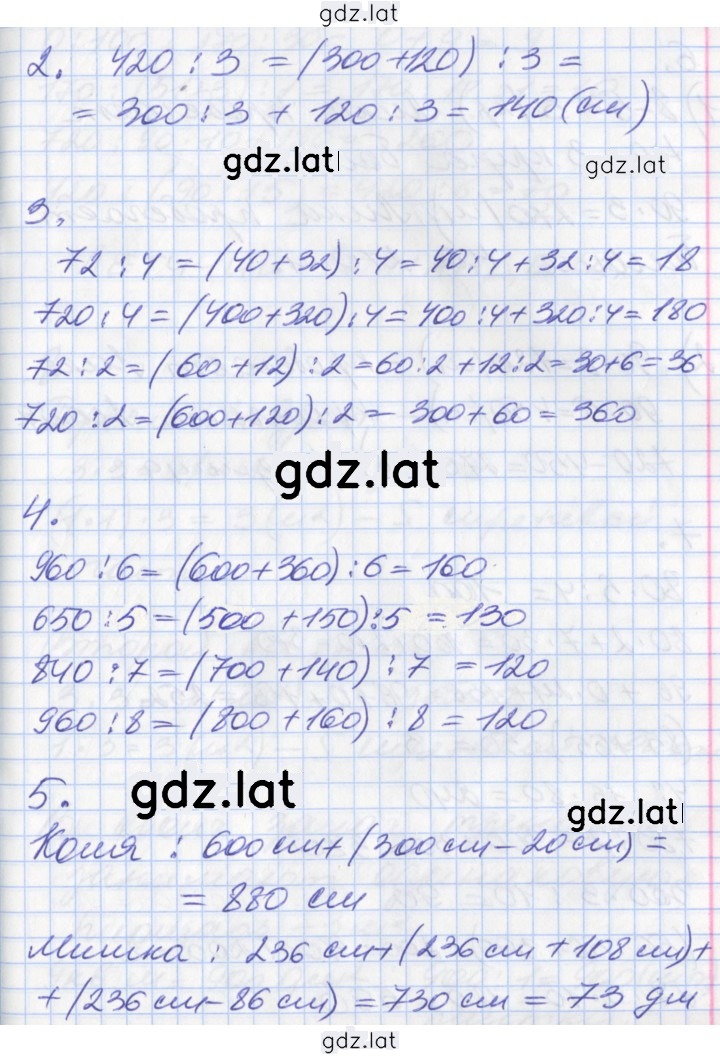 gdz.lat
2. 420 : 3 = (300+120) : 3 =
= 300 : 3 + 120 : 3 = 140 (см)
gdz.lat
gdz.lat
3.
72 : 4 = (40+32) : 4 = 40:4 + 32:4 = 18
720 : 4 = (400+320) : 4 = 400:4 + 320:4 = 180
72 : 2 = (60+12) : 2 = 60:2 + 12:2 = 30+6 = 36
720 : 2 = (600+120) : 2 = 300+60 = 360
gdz.lat
4.
960 : 6 = (600+360) : 6 = 160
650 : 5 = (500+150) : 5 = 130
840 : 7 = (700+140) : 7 = 120
960 : 8 = (800+160) : 8 = 120
5.
gdz.lat
gdz.lat
Коля : 600 см + (300 см - 20 см) =
= 880 см
Мишка : 236 см + (236 см + 108 см) +
+ (236 см - 86 см) = 730 см = 73 дм
gdz.lat